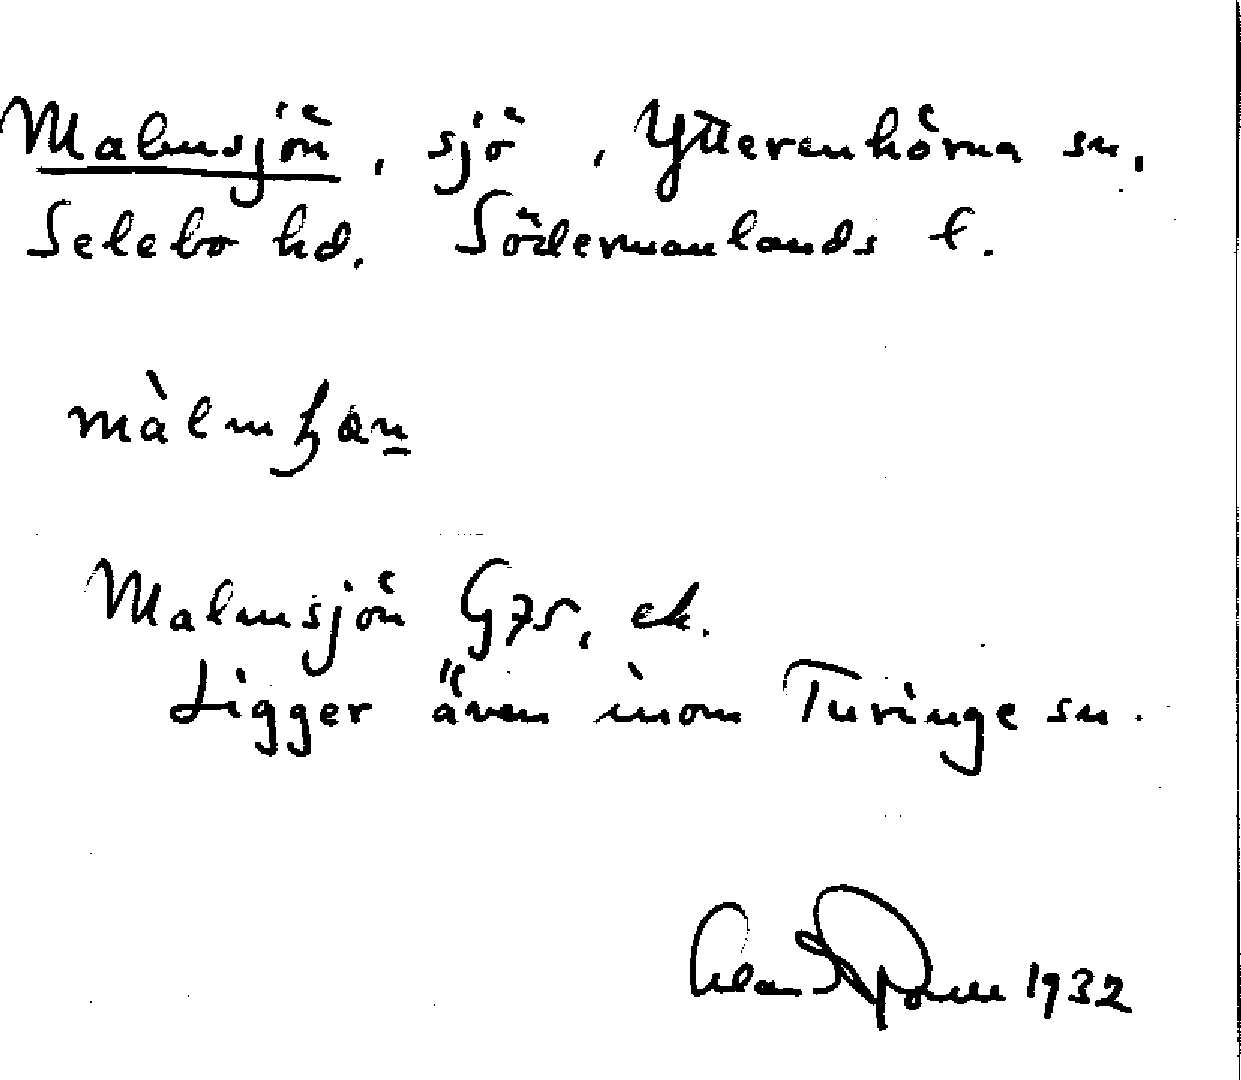 Malmsjön, sjö, Ytterenhörna sn,
Selebo hd. Södermanlands l.
Malmsjön G75, ek.
Ligger även inom Turinge sn.
1932